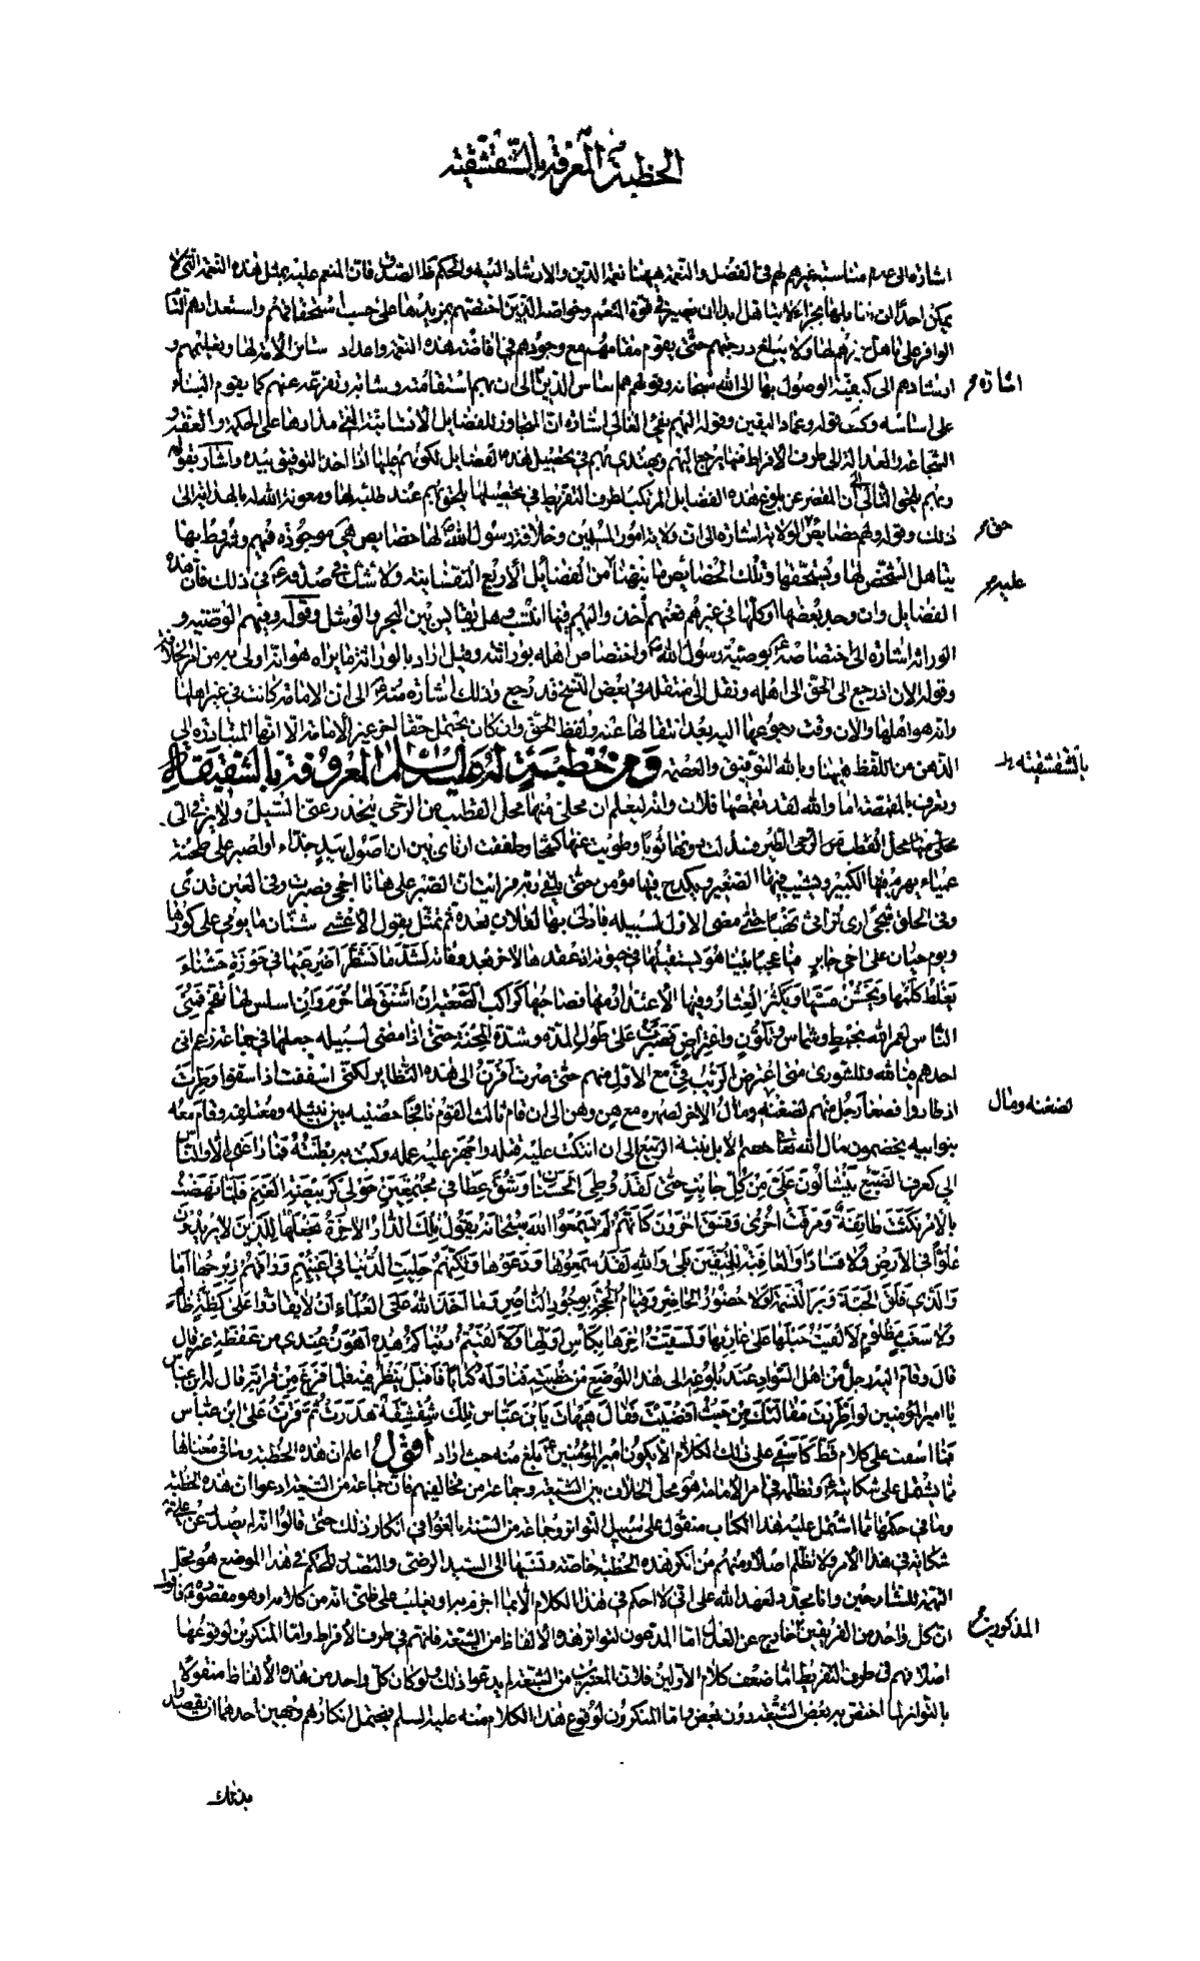 الخطبة المعروفة بالشقشقية
اشارة الى عدم مناسبة غيرهم لهم فى الفضل والنعمة ههنا نعمة الدين والارشاد اليه والحكم ظاهر الصدق فان المنعم عليه بمثل هذه النعمة التى لا
يمكن احدا ان
على اساسه وكنى بقوله وعماد اليقين وقوله اليهم يفئ الغالى اشارة الى ان المتجاوز للفضايل الانسانية التى مدارها على الحكمة والعفة و
الشجاعة والعدالة الى طرف الافراط منها يرجع اليهم ويهتدى بهم فى تحصيل هذه الفضايل لكونهم عليها اذا اخذ التوفيق بيده واشار بقوله
وبهم يلحق التالى الى ان المقصر عن بلوغ هذه الفضايل المرتكب طرف التفريط فى تحصيلها يلحق بهم عند طلبه لها ومعونة الله له بالهداية الى
ذلك وقوله ولهم خصايص الولاية اشارة الى ان ولاية امور المسلمين وخلافة رسول الله لها خصايص هى موجودة فيهم وشروط بها
يتاهل الشخص لها ويستحقها وتلك الخصايص ما نبهنا من الفضايل الاربع النفسانية ولا شك فى صدقه فى ذلك فان هذه
الفضايل وان وجد بعضها او كلها فى غيرهم فعنهم اخذ واليهم فيها انتسب وهل يقايس بين البحر والوشل وقوله وفيهم الوصية و
الوراثة اشارة الى اختصاصه بوصية رسول الله واختصاص اهله بوراثته وقيل اراد بالوراثة ما يراه هو انه اولى به من امر الخلافة
وقوله الان اذ رجع الحق الى اهله ونقل الى منتقله فى بعض النسخ قد رجع وذلك اشارة منه الى ان الامامة كانت فى غير اهلها
وانه هو اهلها والان وقت رجوعها اليه بعد انتقالها عنه ولفظ الحق وان كان يحتمل حقا اخر غير الامامة الا انها المتبادرة الى
الذهن من اللفظ ههنا وبالله التوفيق والعصمة ومن خطبة له عليه السلم المعروفة بالشقشقية
وتعرف بالمقمصة اما والله لقد تقمصها فلان وانه ليعلم ان محلى منها محل القطب من الرحى ينحدر عنى السيل ولا يرقى الى
الطير فسدلت دونها ثوبا وطويت عنها كشحا وطفقت ارتاى بين ان اصول بيد جذاء او اصبر على طخية
عمياء يهرم فيها الكبير ويشيب فيها الصغير ويكدح فيها مؤمن حتى يلقى ربه فرايت ان الصبر على هاتا احجى فصبرت وفى العين قذى
وفى الحلق شجى ارى تراثى نهبا حتى مضى الاول لسبيله فادلى بها لفلان بعده ثم تمثل بقول الاعشى شتان ما يومى على كورها
ويوم حيان اخى جابر فيا عجبا بينا هو يستقيلها فى حيوته اذ عقدها لاخر بعد وفاته لشد ما تشطرا ضرعيها فى حوزة خشناء
يغلظ كلمها ويخشن مسها ويكثر العثار فيها والاعتذار منها فصاحبها كراكب الصعبة ان اشنق لها خرم وان اسلس لها تقحم فمنى
الناس لعمر الله بخبط وشماس وتلون واعتراض فصبرت على طول المدة وشدة المحنة حتى اذا مضى لسبيله جعلها فى جماعة زعم انى
احدهم فيالله وللشورى متى اعترض الريب فى مع الاول منهم حتى صرت اقرن الى هذه النظاير لكنى اسففت اذ اسفوا وطرت
اذ طاروا فصغا رجل منهم لضغنه ومال الاخر لصهره مع هن وهن الى ان قام ثالث القوم نافجا حضنيه بين نثيله ومعتلفه وقام معه
بنو ابيه يخضمون مال الله خضم الابل نبتة الربيع الى ان انتكث عليه فتله واجهز عليه عمله وكبت به بطنته فما راعنى الا والناس
الى كعرف الضبع ينثالون على من كل جانب حتى لقد وطئ الحسنان وشق عطافى مجتمعين حولى كربيضة الغنم فلما نهضت
بالامر نكثت طائفة ومرقت اخرى وفسق اخرون كانهم لم يسمعوا الله سبحانه يقول تلك الدار الاخرة نجعلها للذين لا يريدون
علوا فى الارض ولا فسادا والعاقبة للمتقين بلى والله لقد سمعوها ووعوها ولكنهم حليت الدنيا فى اعينهم وراقهم زبرجها اما
والذى فلق الحبة وبرا النسمة لولا حضور الحاضر وقيام الحجة بوجود الناصر وما اخذ الله على العلماء ان لا يقاروا على كظة ظالم
ولا سغب مظلوم لالقيت حبلها على غاربها ولسقيت اخرها بكاس اولها ولالفيتم دنياكم هذه اهون عندى من عفطة عنز قال
قال وقام اليه رجل من اهل السواد عند بلوغه الى هذا الموضع من خطبته فناوله كتابا فاقبل ينظر فيه فلما فرغ من قرائته قال له ابن عباس
يا امير المؤمنين لو اطردت مقالتك من حيث افضيت فقال هيهات يا ابن عباس تلك شقشقة هدرت ثم قرت قال ابن عباس
فما اسفت على كلام قط كاسفى على ذلك الكلام ان لا يكون امير المؤمنين بلغ منه حيث اراد اقول اعلم ان هذه الخطبة وما فى معناها
مما يشتمل على شكايته وتظلمه فى امر الامامة هو محل الخلاف بين الشيعة وجماعة من مخالفيهم فان جماعة من الشيعة ادعوا ان هذه الخطبة
وما فى حكمها مما اشتمل عليه هذا الكتاب منقول على سبيل التواتر وجماعة من السنة بالغوا فى انكار ذلك حتى قالوا انه لم يصدر عن على
شكاية فى هذا الامر ولا تظلم اصلا ومنهم من انكر هذه الخطبة خاصة ونسبها الى السيد الرضى والتصدى للحكم فى هذا الموضع هو محل
التهمة للشارحين وانا مجدد لعهد الله على انى لا احكم فى هذا الكلام الا بما اجزم به او يغلب على ظنى انه من كلامه او هو مقصوده فاقول
ان كل واحد من الفريقين خارج عن العدل اما المدعون لتواتر هذه الالفاظ من الشيعة فانهم فى طرف الافراط واما المنكرون لوقوعها
اصلا فهم فى طرف التفريط اما ضعف كلام الاولين فلان المعتبرين من الشيعة لم يدعوا ذلك ولو كان كل واحد من هذه الالفاظ منقولا
بالتواتر لما اختص به بعض الشيعة دون بعض واما المنكرون لوقوع هذا الكلام منه عليه السلم فيحتمل انكارهم وجهين احدهما ان يقصدوا
اشارة
بالشقشقية
لضغنه ومال
المذكورين
بذلك